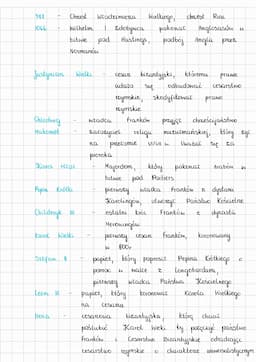 988 - Chrzest Włodzimierza Wielkiego, chrzest Rusi
1066 - Wilhelm I Zdobywca pokonał Anglosasów w
bitwie pod Hastings, podbój Anglii przez
Normanów
Justynian Wielki - cesarz bizantyjski, któremu prawie
udało się odbudować cesarstwo
rzymskie, skodyfikował prawo
rzymskie
Chlodwig - władca Franków przyjął chrześcijaństwo
Mahomet - założyciel religii muzułmańskiej, który żył
na przełomie VI/VII w. Uważał się za
proroka
Karol Młot - Majordom, który pokonał Arabów w
bitwie pod Poitiers
Pepin Krótki - pierwszy władca Franków z dynastii
Karolingów, utworzył Państwo Kościelne
Childeryk III - ostatni król Franków z dynastii
Merowingów
Karol Wielki - pierwszy cesarz Franków, koronowany
w 800r
Stefan II - papież, który poprosił Pepina Krótkiego o
pomoc w walce z Longobardami,
pierwszy władca Państwa Kościelnego
Leon III - papież, który koronował Karola Wielkiego
na cesarza
Irena - cesarzowa bizantyjska, którą chciał
poślubić Karol Wielki by połączyć państwo
Franków i Cesarstwo Bizantyjskie odradzając
cesarstwo rzymskie o charakterze uniwersalistycznym